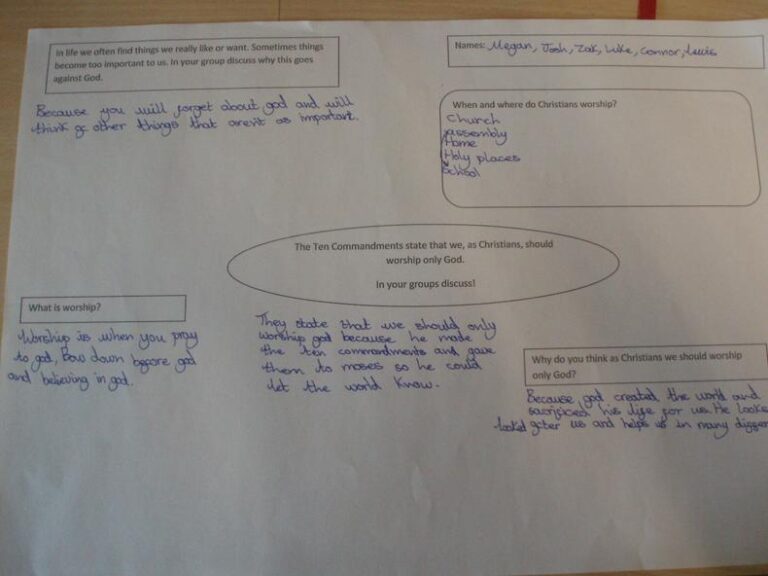 In life we often find things we really like or want. Sometimes things
become too important to us. In your group discuss why this goes
against God.
Because you will forget about god and will
think of other things that aren't as important.
Names: Megan, Josh, Zak, Luke, Connor, Lewis
When and where do Christians worship?
Church
assembly
Home
Holy places
School
The Ten Commandments state that we, as Christians, should
worship only God.
In your groups discuss!
What is worship?
Worship is when you pray
to god, Bow down before god
and believing in god.
They state that we should only
worship god because he made
the ten commandments and gave
them to moses so he could
let the world know.
Why do you think as Christians we should worship
only God?
Because god created the world and
sacrificed his life for us. He
looked after us and helps us in many